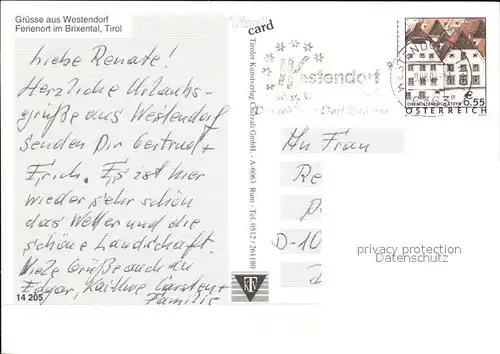 Grüsse aus Westendorf
Ferienort im Brixental, Tirol
Liebe Renate!
Herzliche Urlaubs-
grüße aus Westendorf
senden Dir Gertrud +
Erich. Es ist hier
wieder sehr schön
das Wetter und die
schöne Landschaft.
Viele Grüße auch an
Edgar, Käthe Carsten +
Familie
14 205
card
Tiroler Kunstverlag Chizzali GmbH. - A-6063 Rum - Tel. 0512 / 261180
Westendorf
WESTENDORF
€ 0,55
ÖSTERREICH
An Frau
Re
D-10
privacy protection
Datenschutz